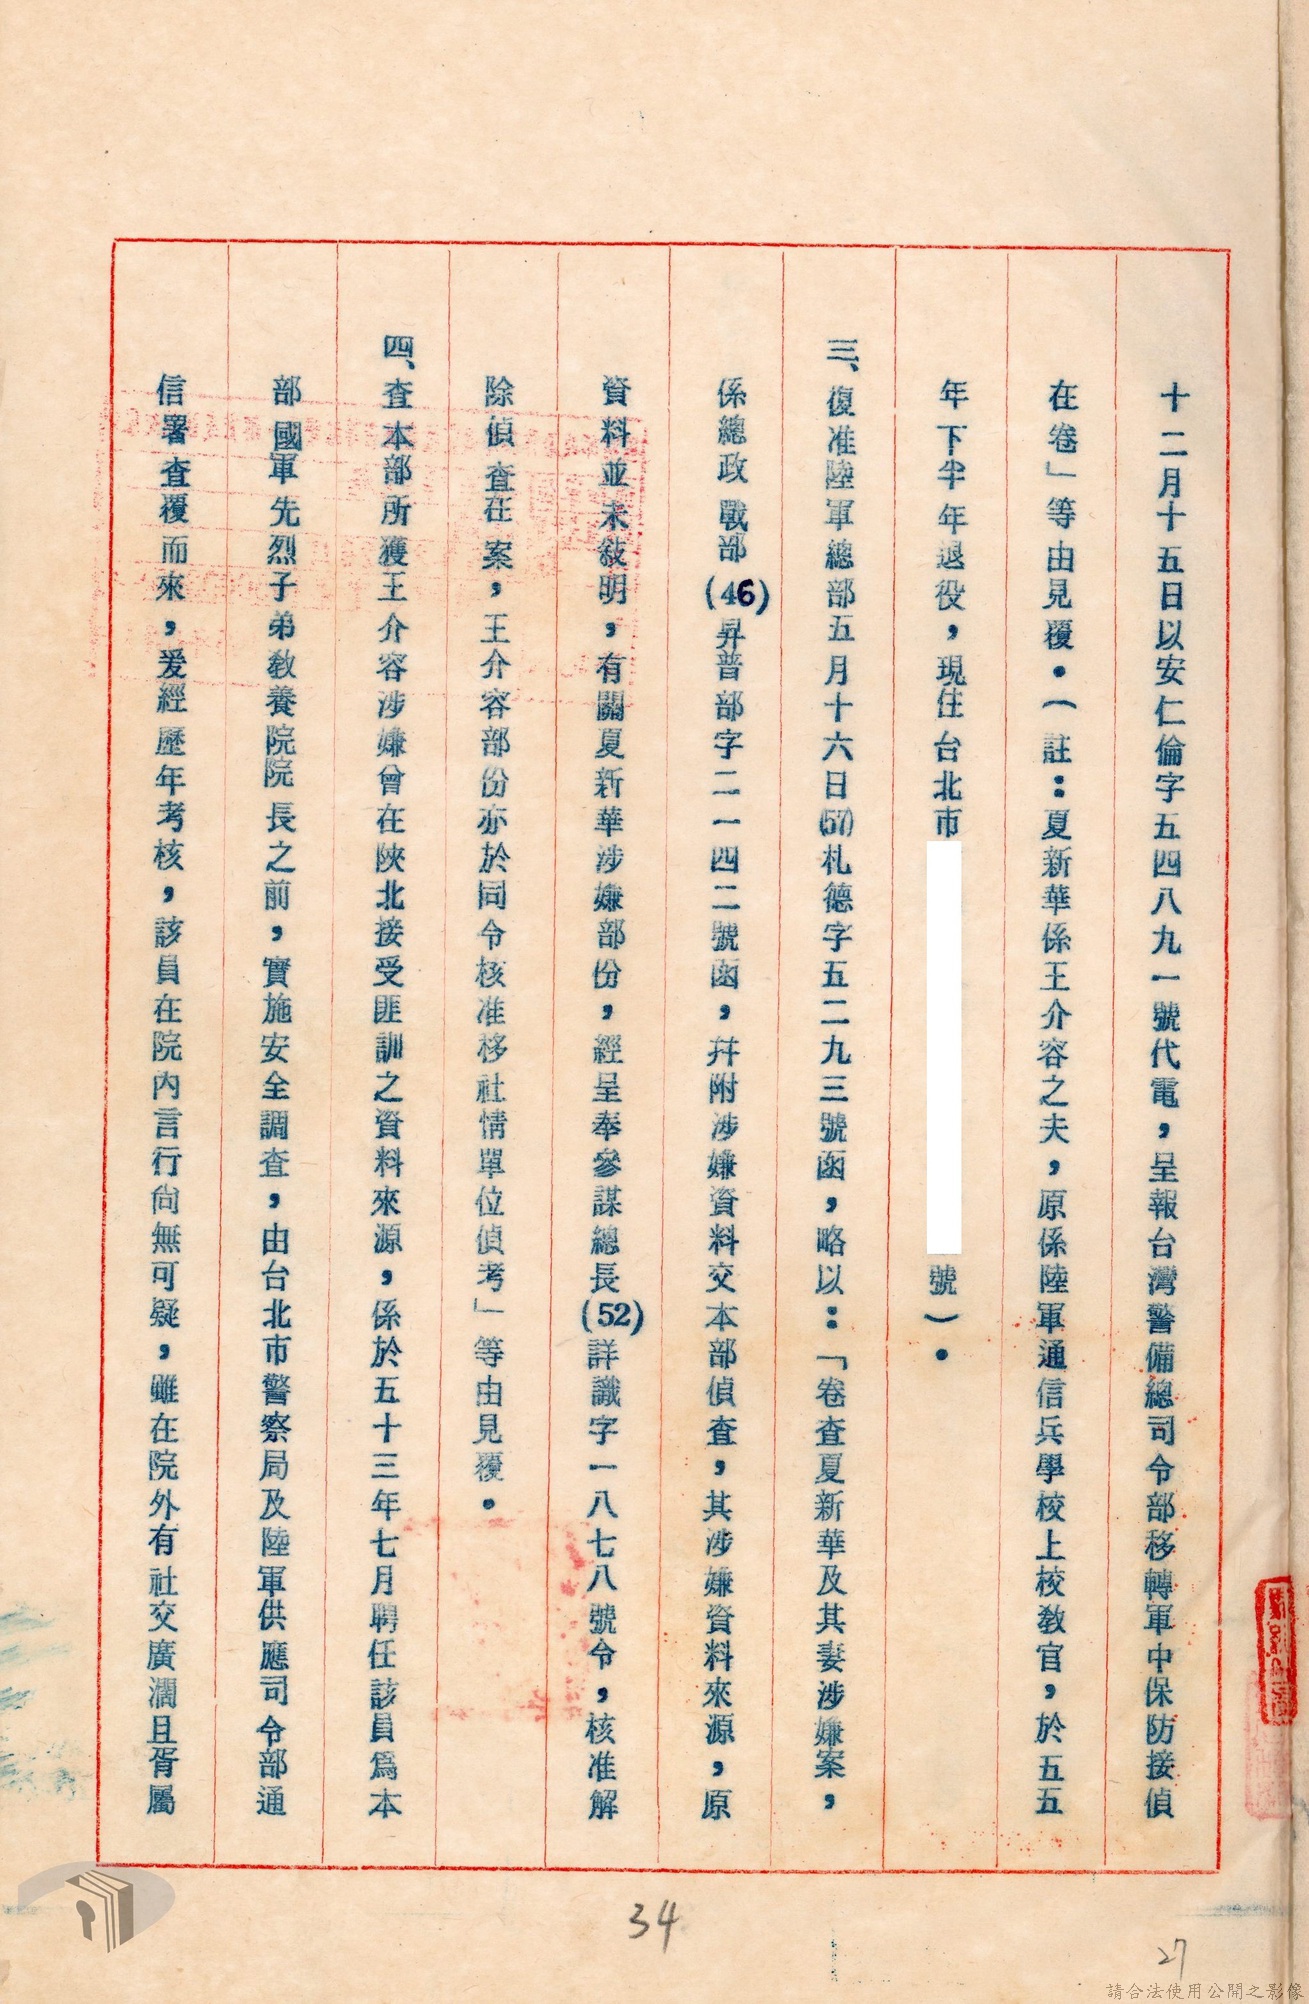 十二月十五日以安仁倫字五四八九一號代電，呈報台灣警備總司令部移轉軍中保防接偵
在卷」等由見覆．（註：夏新華係王介容之夫，原係陸軍通信兵學校上校教官，於五五
年下半年退役，現住台北市
號）．
三、復准陸軍總部五月十六日(57)札德字五二九三號函，略以：「卷查夏新華及其妻涉嫌案，
係總政戰部(46)昇普部字二一四二號函，幷附涉嫌資料交本部偵查，其涉嫌資料來源，原
資料並未敍明，有關夏新華涉嫌部份，經呈奉參謀總長(52)詳識字一八七八號令，核准解
除偵查在案，王介容部份亦於同令核准移社情單位偵考」等由見覆．
四、查本部所獲王介容涉嫌曾在陝北接受匪訓之資料來源，係於五十三年七月聘任該員爲本
部國軍先烈子弟敎養院院長之前，實施安全調查，由台北市警察局及陸軍供應司令部通
信署查覆而來，爰經歷年考核，該員在院內言行尙無可疑，雖在院外有社交廣濶且胥屬
34
27
請合法使用公開之影像